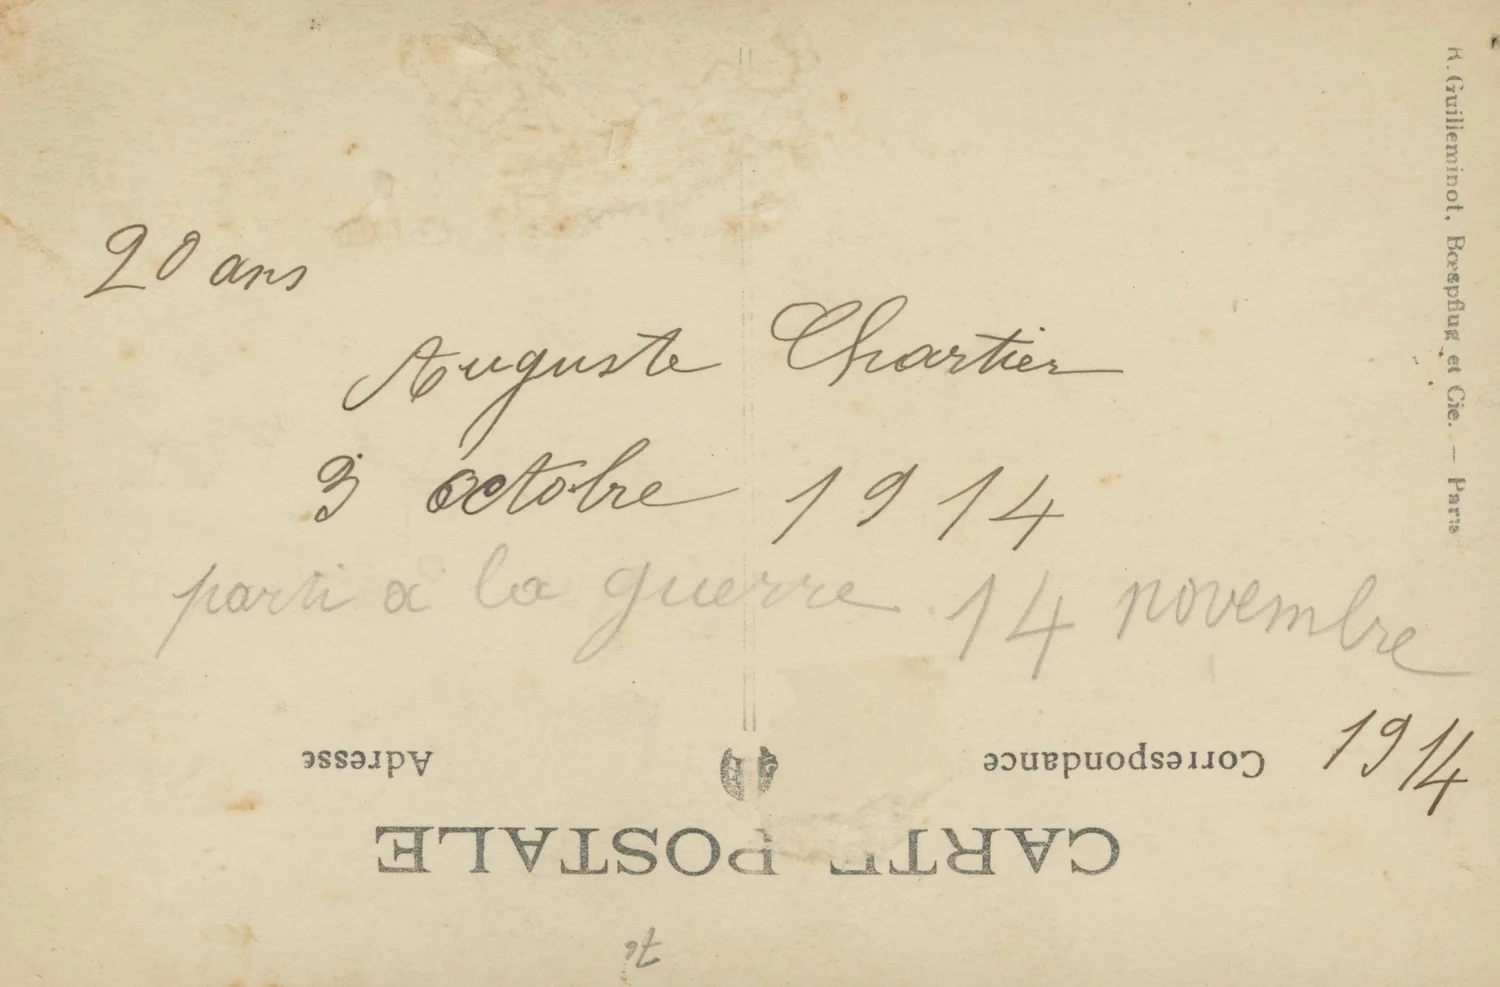 20 ans
Auguste Chartier
3 octobre 1914
parti a la guerre 14 novembre
1914
Adresse
Correspondance
CARTE POSTALE
R. Guilleminot, Bœspflug et Cie. — Paris